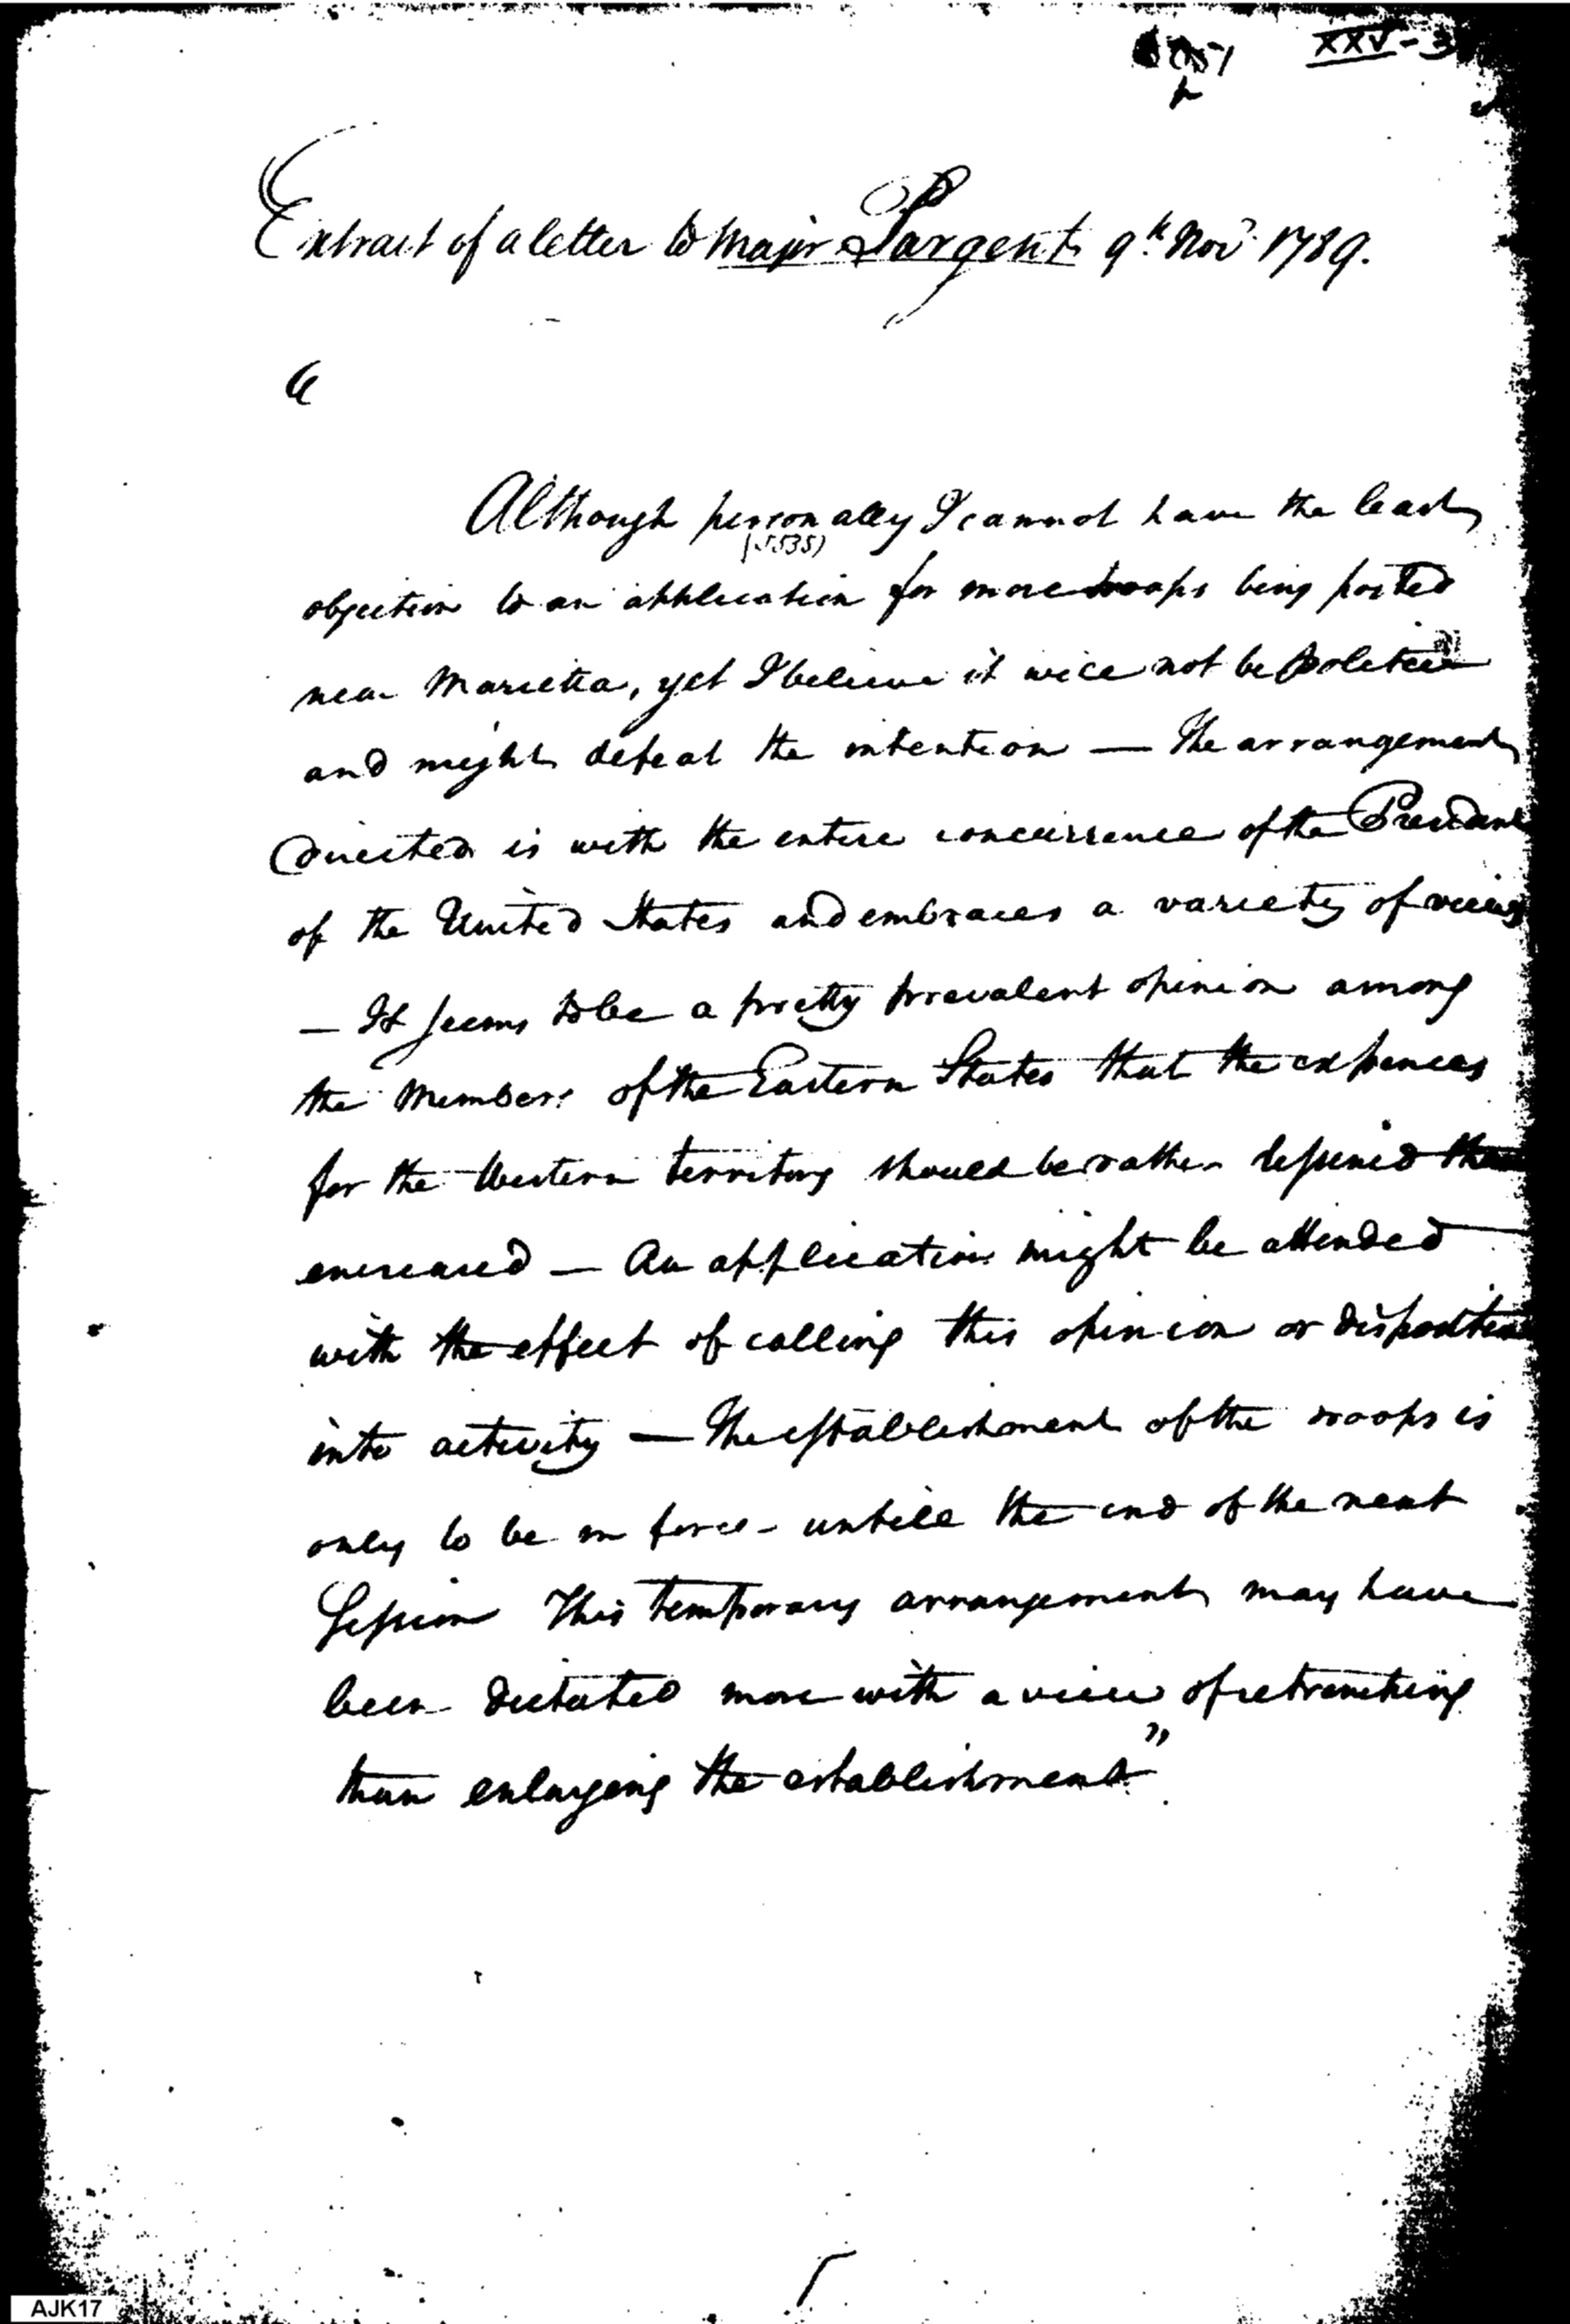 XXV-3
Extract of a letter to Major Sargent 9th Novr 1789.
"
Although personally I cannot have the least
(5535)
objection to an application for more troops being posted
near Marietta, yet I believe it will not be
and might defeat the intention — The arrangement
directed is with the entire concurrence of the President
of the United States and embraces a variety of views
— It seems to be a pretty prevalent opinion among
the Members of the Eastern States that the expences
for the Western territory should be rather lessened than
encreased — An application might be attended
with the effect of calling this opinion or disposition
into activity — The establishment of the troops is
only to be in force untill the end of the next
Session This temporary arrangement may have
been dictated more with a view of retrenching
than enlarging the establishment"
AJK17